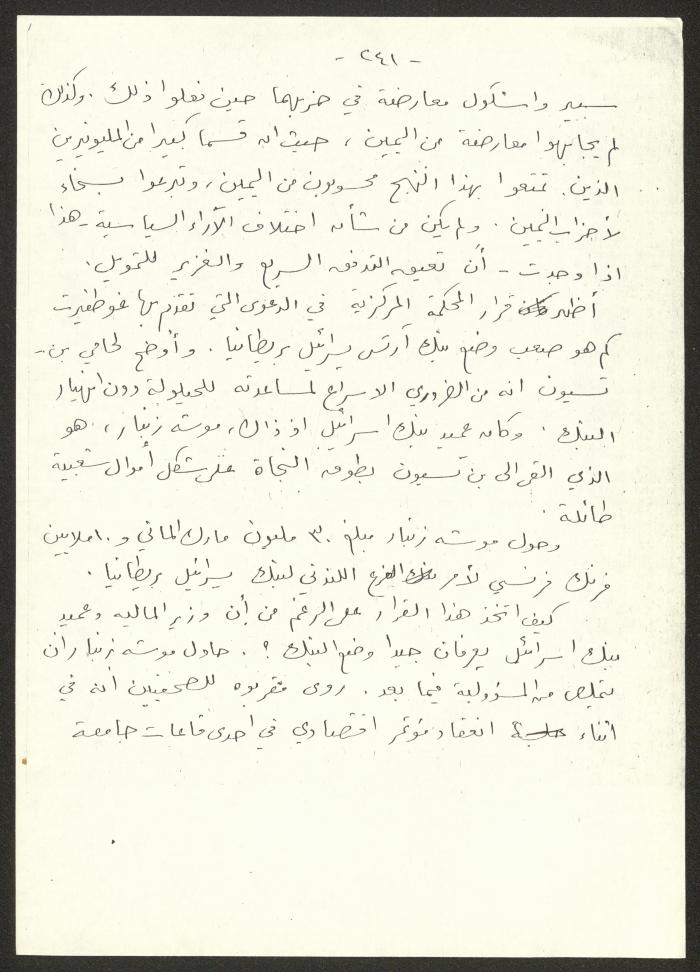 - ٢٤١ -
سبير واشكول معارضة في حزبهما حين فعلوا ذلك . وكذلك
لم يجابهوا معارضة من اليمين ، حيث ان قسما كبيرا من المليونيرين
الذين تمتعوا بهذا النهج محسوبون من اليمين ، وتبرعوا بسخاء
لأحزاب اليمين . ولم يكن من شأن اختلاف الآراء السياسية - هذا
اذا وجدت - أن تعيق التدفق السريع والغزير للتمويل .
أظهر قرار المحكمة المركزية في الدعوى التي تقدم بها غوطفيرت
كم هو صعب وضع بنك آرتس يسرائيل بريطانيا . وأوضح لحامي بن -
تسيون انه من الضروري الاسراع لمساعدته للحيلولة دون انهيار
البنك . وكان عميد بنك اسرائيل اذ ذاك ، موشه زنبار ، هو
الذي القى الى بن تسيون بطوق النجاة على شكل أموال شعبية
طائلة .
وحول موشه زنبار مبلغ ٣٠ مليون مارك الماني و ١٠ ملايين
فرنك فرنسي لأمر الفرع اللندني لبنك يسرائيل بريطانيا .
كيف اتخذ هذا القرار على الرغم من أن وزير الماليه وعميد
بنك اسرائيل يعرفان جيدا وضع البنك ؟ . حاول موشه زنبار ان
يتملص من المسؤولية فيما بعد . روى مقربوه للصحفيين انه في
اثناء انعقاد مؤتمر اقتصادي في احدى قاعات جامعة